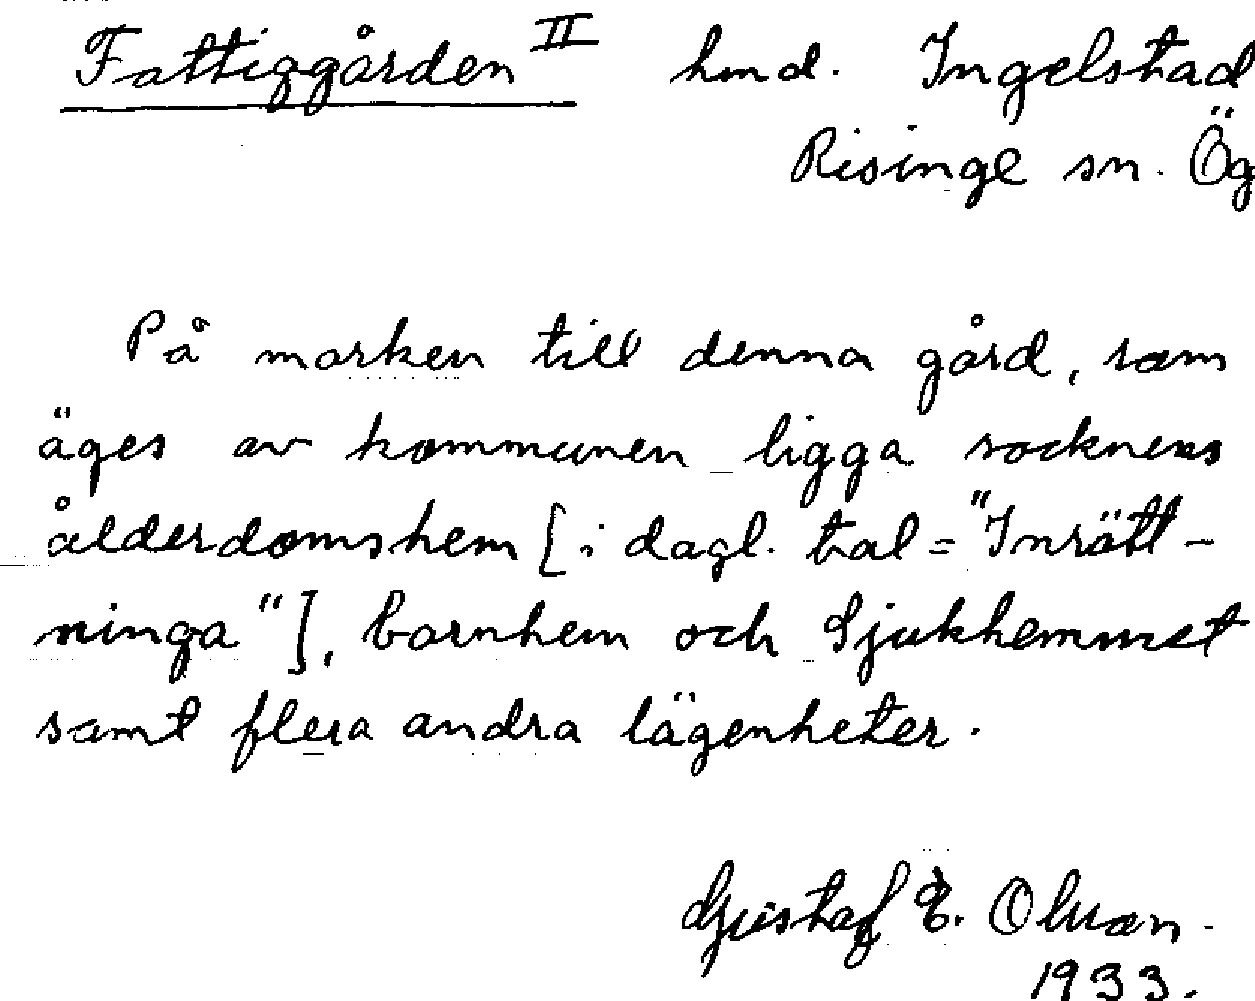 Fattiggården II hmd. Ingelstad
Risinge sn. Ög
På marken till denna gård, som
äges av kommunen ligga socknens
ålderdomshem [i dagl. tal = "Inrätt-
ninga"], barnhem och Sjukhemmet
samt flera andra lägenheter.
Gustaf E. Olson.
1933.